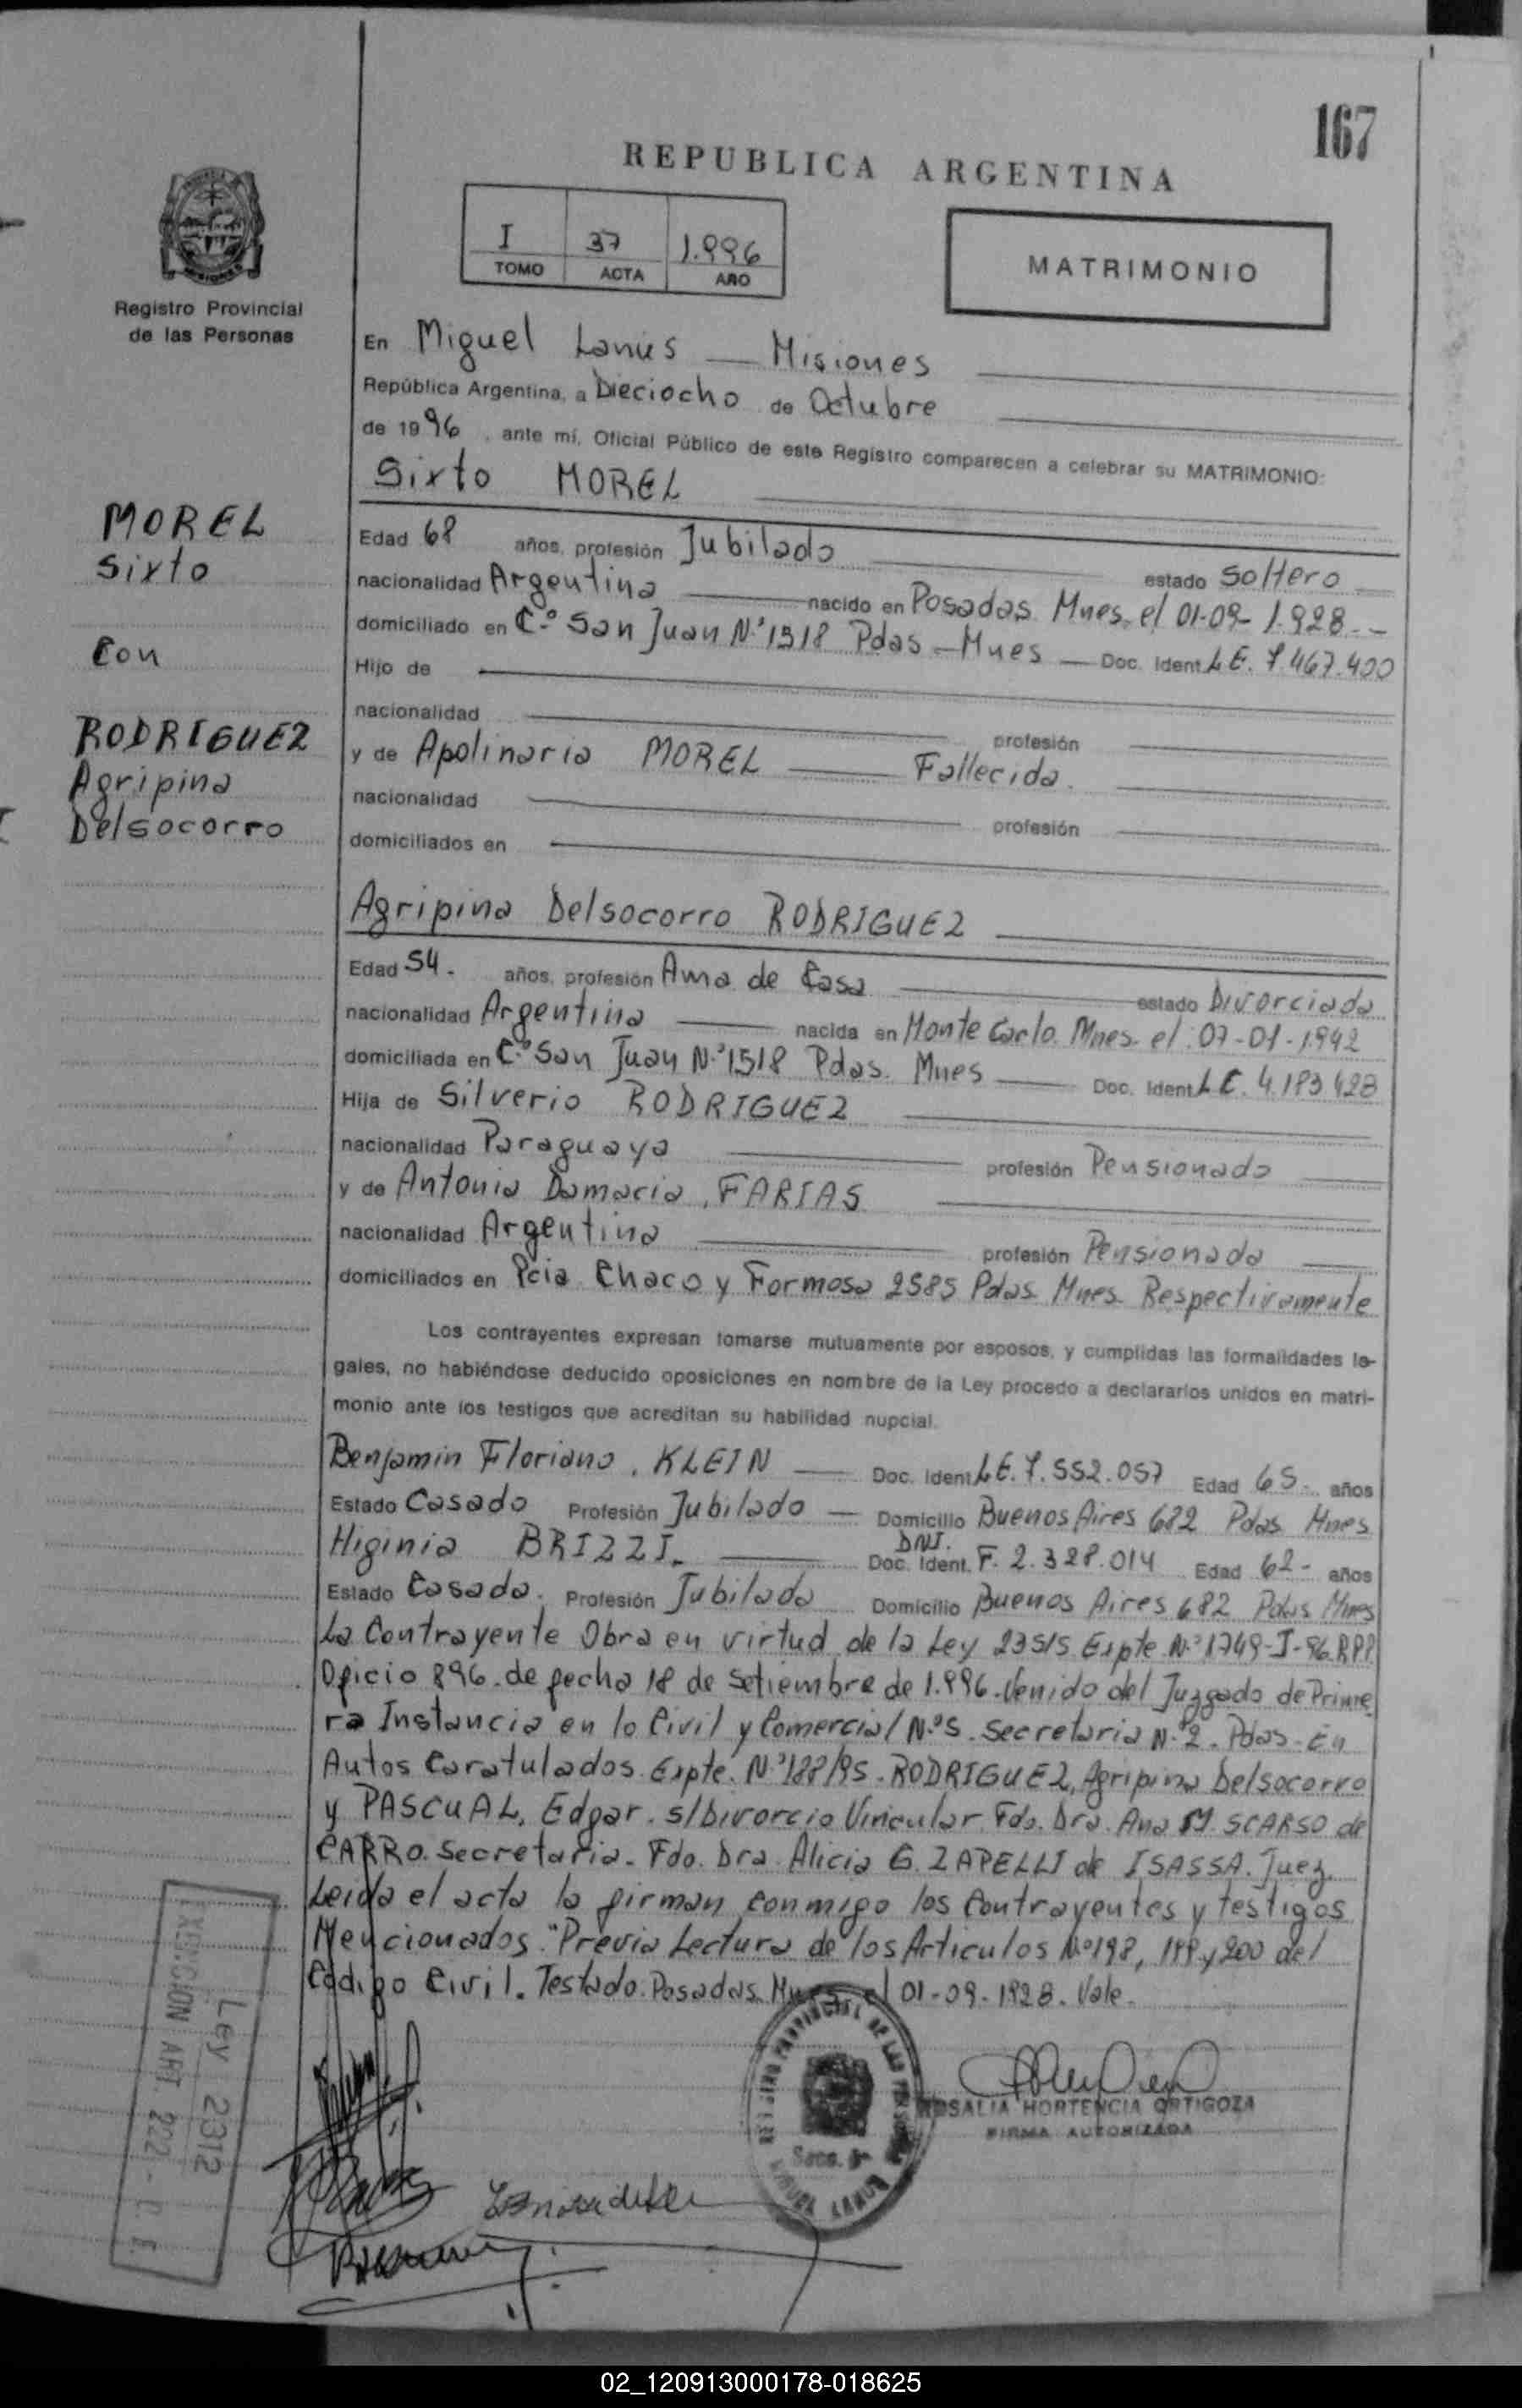 167
REPUBLICA ARGENTINA
I 37 1.996
TOMO ACTA AÑO
MATRIMONIO
Registro Provincial
de las Personas
En Miguel Lanús — Misiones
República Argentina, a Dieciocho de Octubre
de 1996, ante mí, Oficial Público de este Registro comparecen a celebrar su MATRIMONIO:
Sixto MOREL
MOREL
Sixto
Con
RODRIGUEZ
Agripina
Delsocorro
Edad 68 años, profesión Jubilado estado Soltero
nacionalidad Argentina nacido en Posadas. Mnes. el 01-09-1.928.-
domiciliado en C.º San Juan N.º 1518 Pdas - Mnes — Doc. Ident. L.E. 7.467.400
Hijo de
nacionalidad profesión
y de Apolinaria MOREL — Fallecida.
nacionalidad profesión
domiciliados en
Agripina Delsocorro RODRIGUEZ
Edad 54. años, profesión Ama de Casa estado Divorciada
nacionalidad Argentina nacida en Monte Carlo. Mnes. el: 07-01-1942
domiciliada en C.º San Juan N.º 1518 Pdas. Mnes — Doc. Ident. L.C. 4.183.428
Hija de Silverio RODRIGUEZ
nacionalidad Paraguaya profesión Pensionado
y de Antonia Damacia, FARIAS
nacionalidad Argentina profesión Pensionada
domiciliados en Pcia. Chaco y Formosa 2585 Pdas Mnes. Respectivamente
Los contrayentes expresan tomarse mutuamente por esposos, y cumplidas las formalidades le-
gales, no habiéndose deducido oposiciones en nombre de la Ley procedo a declararlos unidos en matri-
monio ante los testigos que acreditan su habilidad nupcial.
Benjamin Floriano, KLEIN — Doc. Ident. L.E. 7.552.057 Edad 65- años
Estado Casado Profesión Jubilado — Domicilio Buenos Aires 682 Pdas Mnes
Higinia BRIZZI. — DNI. Doc. Ident. F. 2.328.014 Edad 62- años
Estado Casada. Profesión Jubilada Domicilio Buenos Aires 682 Pdas Mnes
La Contrayente Obra en virtud de la Ley 23515 Expte N.º 1749-I-96. R.P.P.
Oficio 896. de fecha 18 de Setiembre de 1.996. Venido del Juzgado de Prime
ra Instancia en lo Civil y Comercial N.º 5. Secretaria N.º 2. Pdas - En
Autos Caratulados. Expte. N.º 188/95. RODRIGUEZ, Agripina Delsocorro
y PASCUAL, Edgar. s/Divorcio Vincular. Fdo. Dra. Ana M. SCARSO de
CARRO. Secretaria. Fdo. Dra. Alicia G. ZAPELLI de ISASSA. Juez.
Leida el acta la firman conmigo los Contrayentes y testigos
Mencionados. "Previa Lectura de los Articulos N.º 198, 199 y 200 del
Código Civil. Testado: Posadas. Mnes. el 01-09-1928. Vale.
Ley 2312
EXENCION ART. 222 -
REGISTRO PROVINCIAL DE LAS PERSONAS
MIGUEL LANUS
ROSALIA HORTENCIA ORTIGOZA
FIRMA AUTORIZADA
02_120913000178-018625